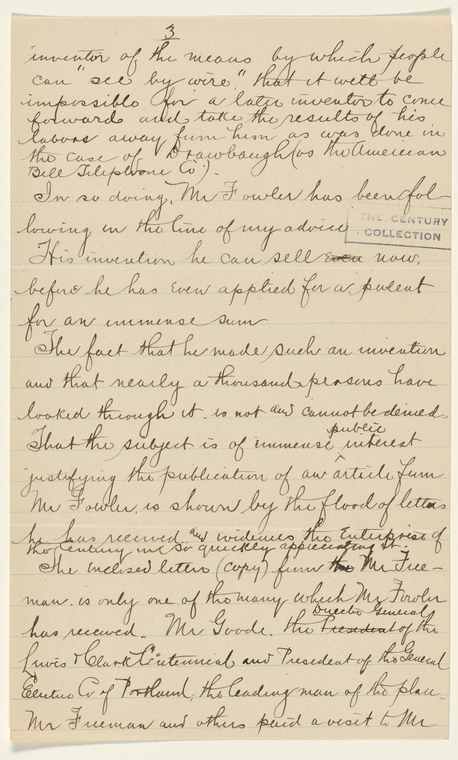 3
inventor of the means by which people
can "see by wire" that it will be
impossible for a later inventor to come
forward and take the results of his
labors away from him as was done in
the case of Drawbaugh (vs the American
Bell Telephone Co).
In so doing, Mr Fowler has been fol-
lowing in the line of my advice
THE CENTURY
COLLECTION
His invention he can sell even now,
before he has even applied for a patent
for an immense sum
The fact that he made such an invention
and that nearly a thousand persons have
looked through it is not and cannot be denied.
public
That the subject is of immense interest
justifying the publication of an article from
Mr Fowler, is shown by the flood of letters
he has received and evidences the Enterprise of
the Century in so quickly appreciating it.
The inclosed letter (copy) from the Mr Free-
man is only one of the many which Mr Fowler
Director General
has received. Mr Goode, the President of the
Lewis & Clark Centennial and President of the General
Electric Co of Portland, the leading man of the place
Mr Freeman and others paid a visit to Mr